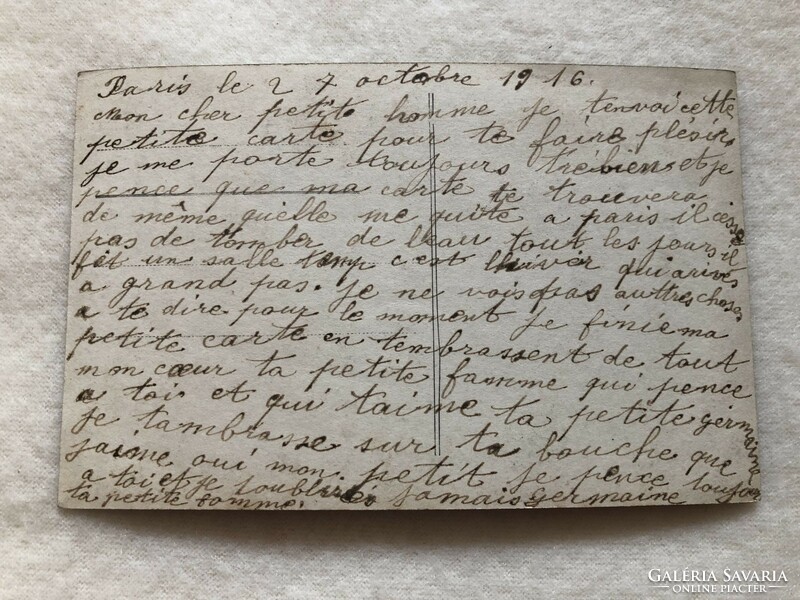 Paris le 27 octobre 1916.
Mon cher petit homme je tenvoi cette
petite carte pour te faire plésir
je me porte toujours trébien et je
pence que ma carte te trouvera
de même quelle me quite a paris il cesse
pas de tomber de leau tout les jours il
fet un salle temp c'est lhiver qui arives
a grand pas. je ne vois pas autres choses
a te dire pour le moment je finie ma
petite carte en tembrassent de tout
mon cœur ta petite famme qui pence
a toi et qui taime ta petite germaine
je tambrasse sur ta bouche que
jaime oui mon petit je pence toujour
a toi et je toublirer jamais germaine
ta petite famme.
GALÉRIA SAVARIA
ONLINE PIACTÉR